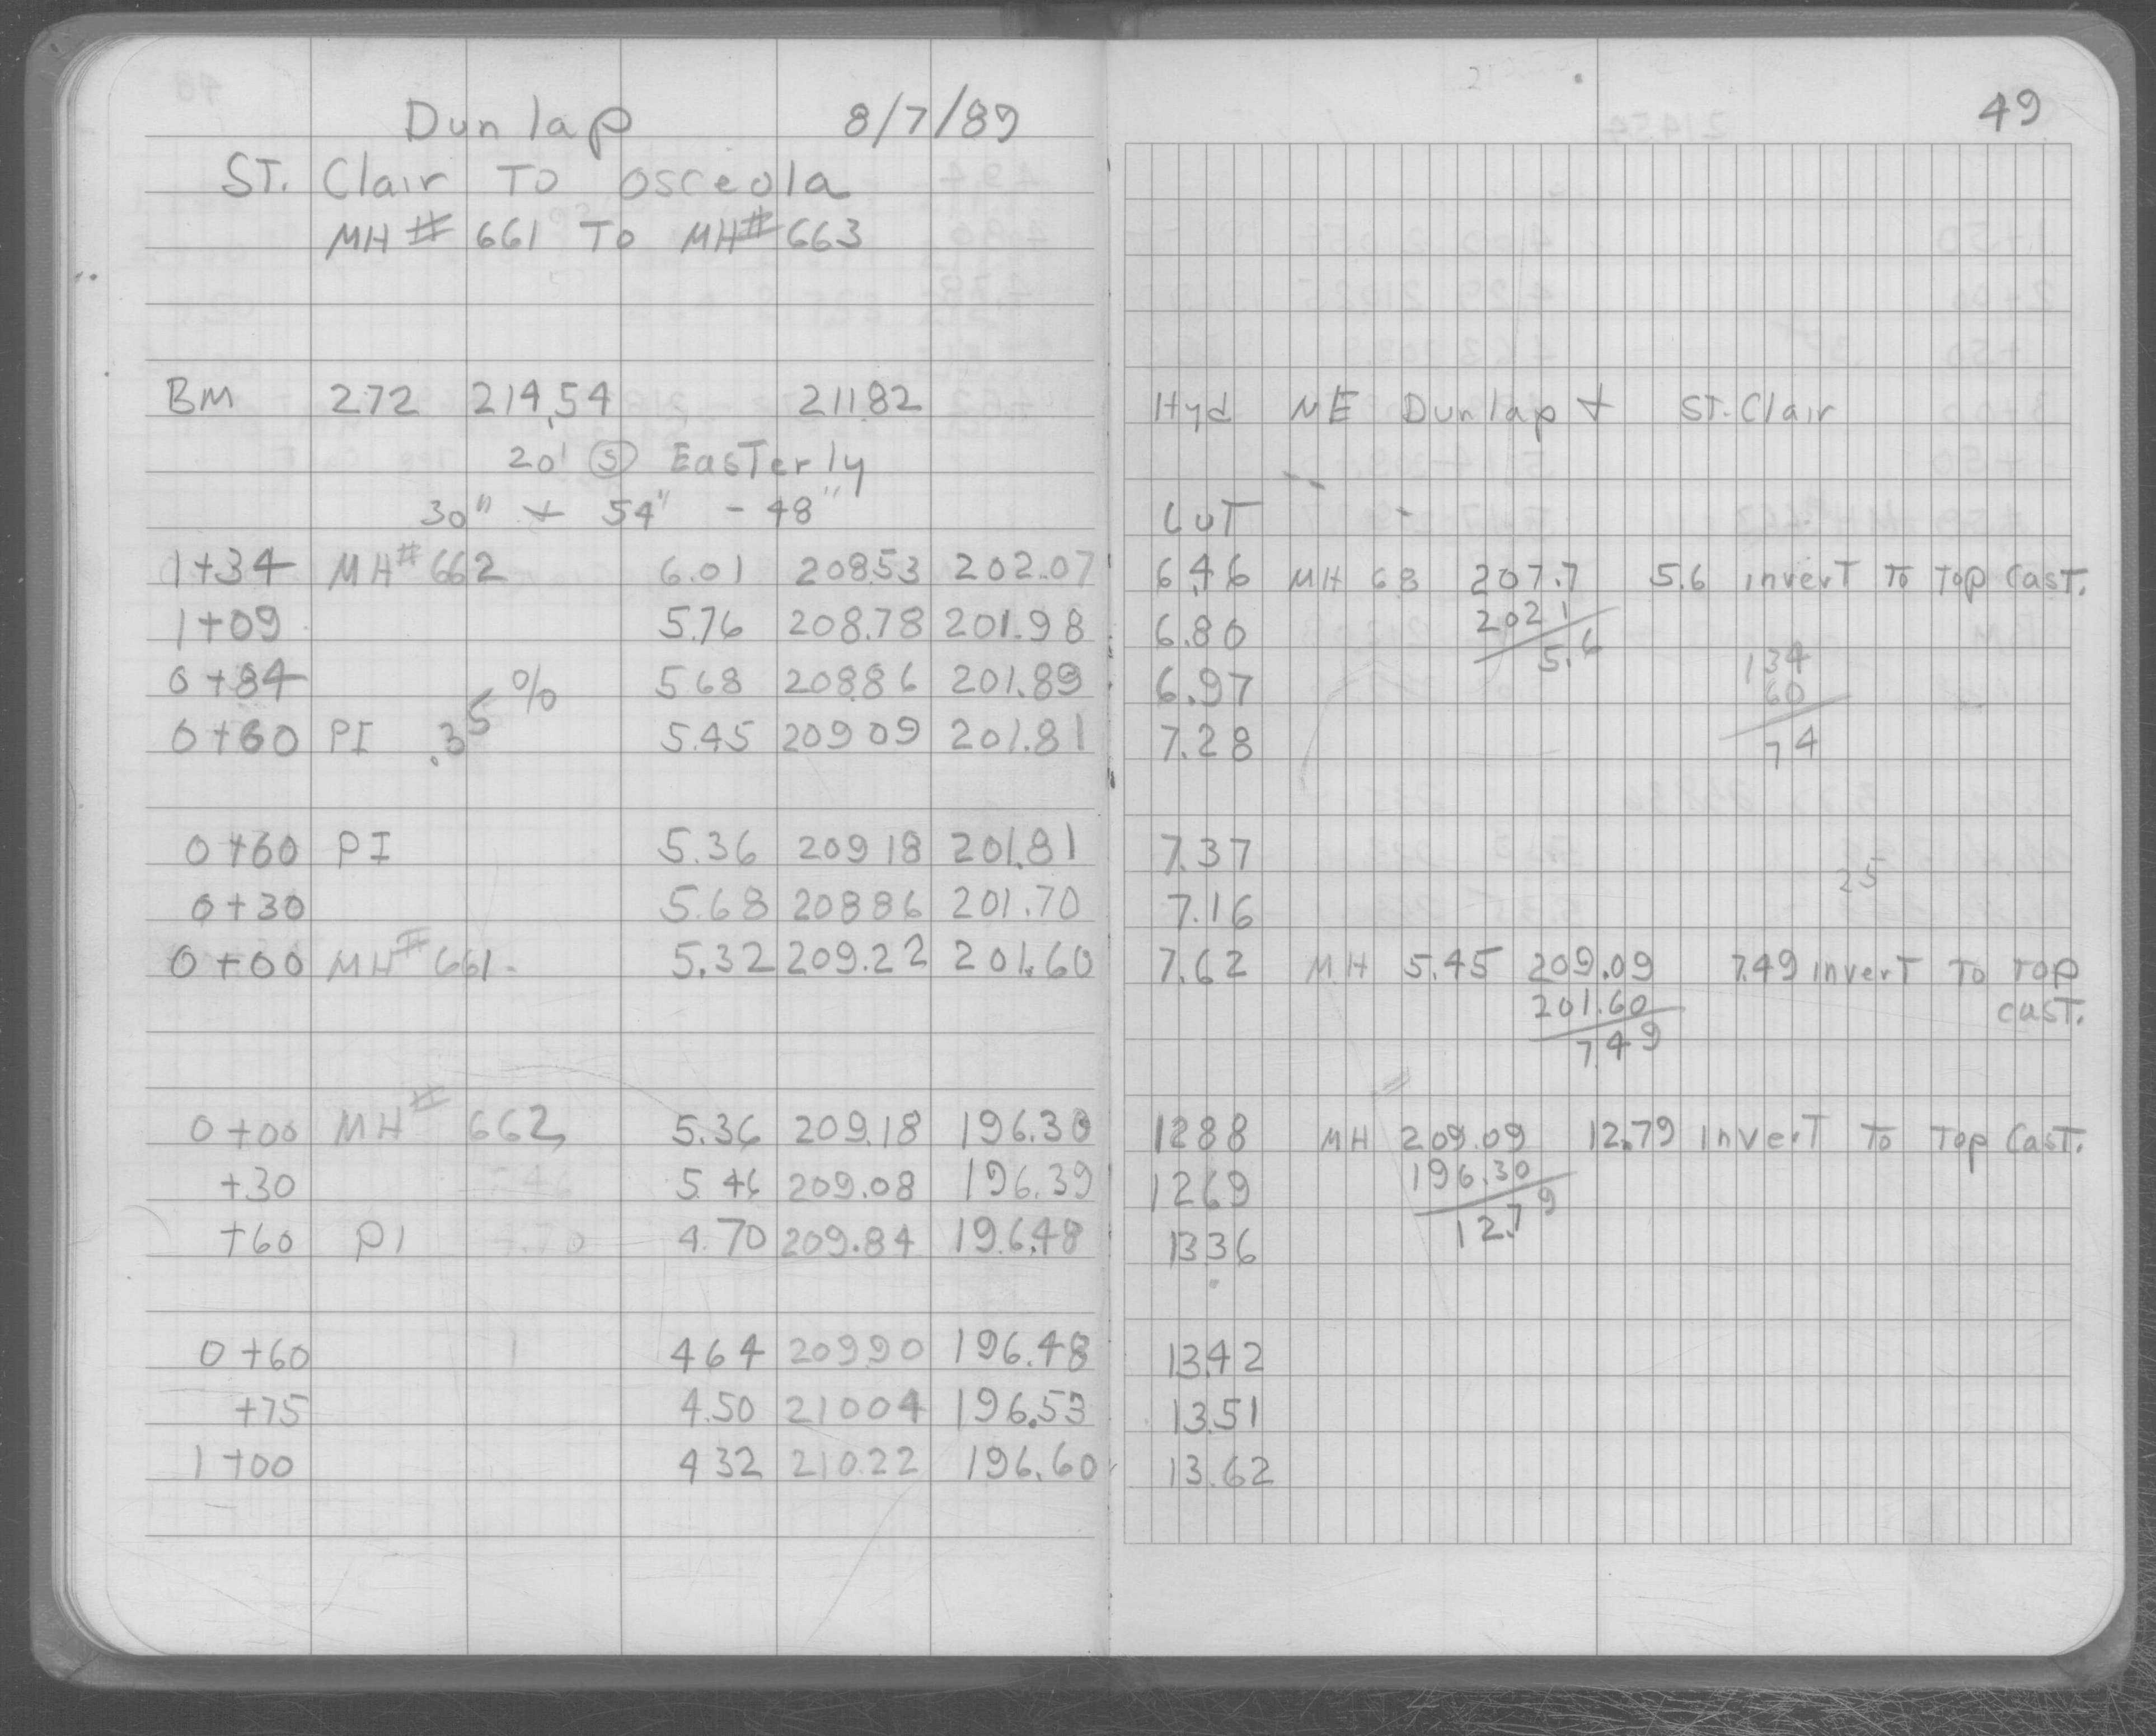 Dunlap 8/7/89
ST. Clair TO Osceola
MH # 661 TO MH# 663
BM 2.72 214.54 211.82
20' (S) Easterly
30" + 54" - 48"
1+34 MH# 662 6.01 208.53 202.07
1+09 5.76 208.78 201.98
0+84 5.68 208.86 201.89
0+60 PI .35 % 5.45 209.09 201.81
0+60 PI 5.36 209.18 201.81
0+30 5.68 208.86 201.70
0+00 MH# 661 5.32 209.22 201.60
0+00 MH# 662 5.36 209.18 196.30
+30 5.46 209.08 196.39
+60 PI 4.70 209.84 196.48
0+60 4.64 209.90 196.48
+75 4.50 210.04 196.53
1+00 4.32 210.22 196.60
49
Hyd NE Dunlap + ST. Clair
CuT
6.46 MH 68 207.7 5.6 invert To Top Cast.
6.80 202.1
5.6
134
6.97 60
7.28 74
7.37
25
7.16
7.62 MH 5.45 209.09 7.49 invert To Top
201.60 cast.
7.49
12.88 MH 209.09 12.79 Invert To Top Cast.
12.69 196.30
13.36 12.79
13.42
13.51
13.62